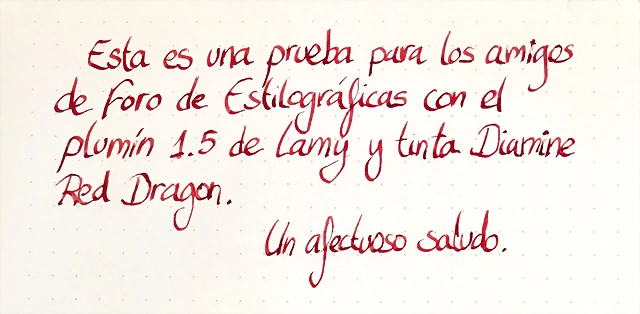 Esta es una prueba para los amigos
de Foro de Estilográficas con el
plumín 1.5 de Lamy y tinta Diamine
Red Dragon.
Un afectuoso saludo.